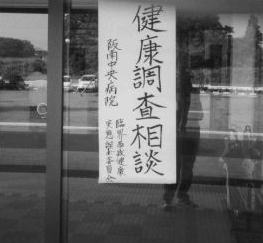 健康調査相談
阪南中央病院
臨界事故健康
実態調査委員会